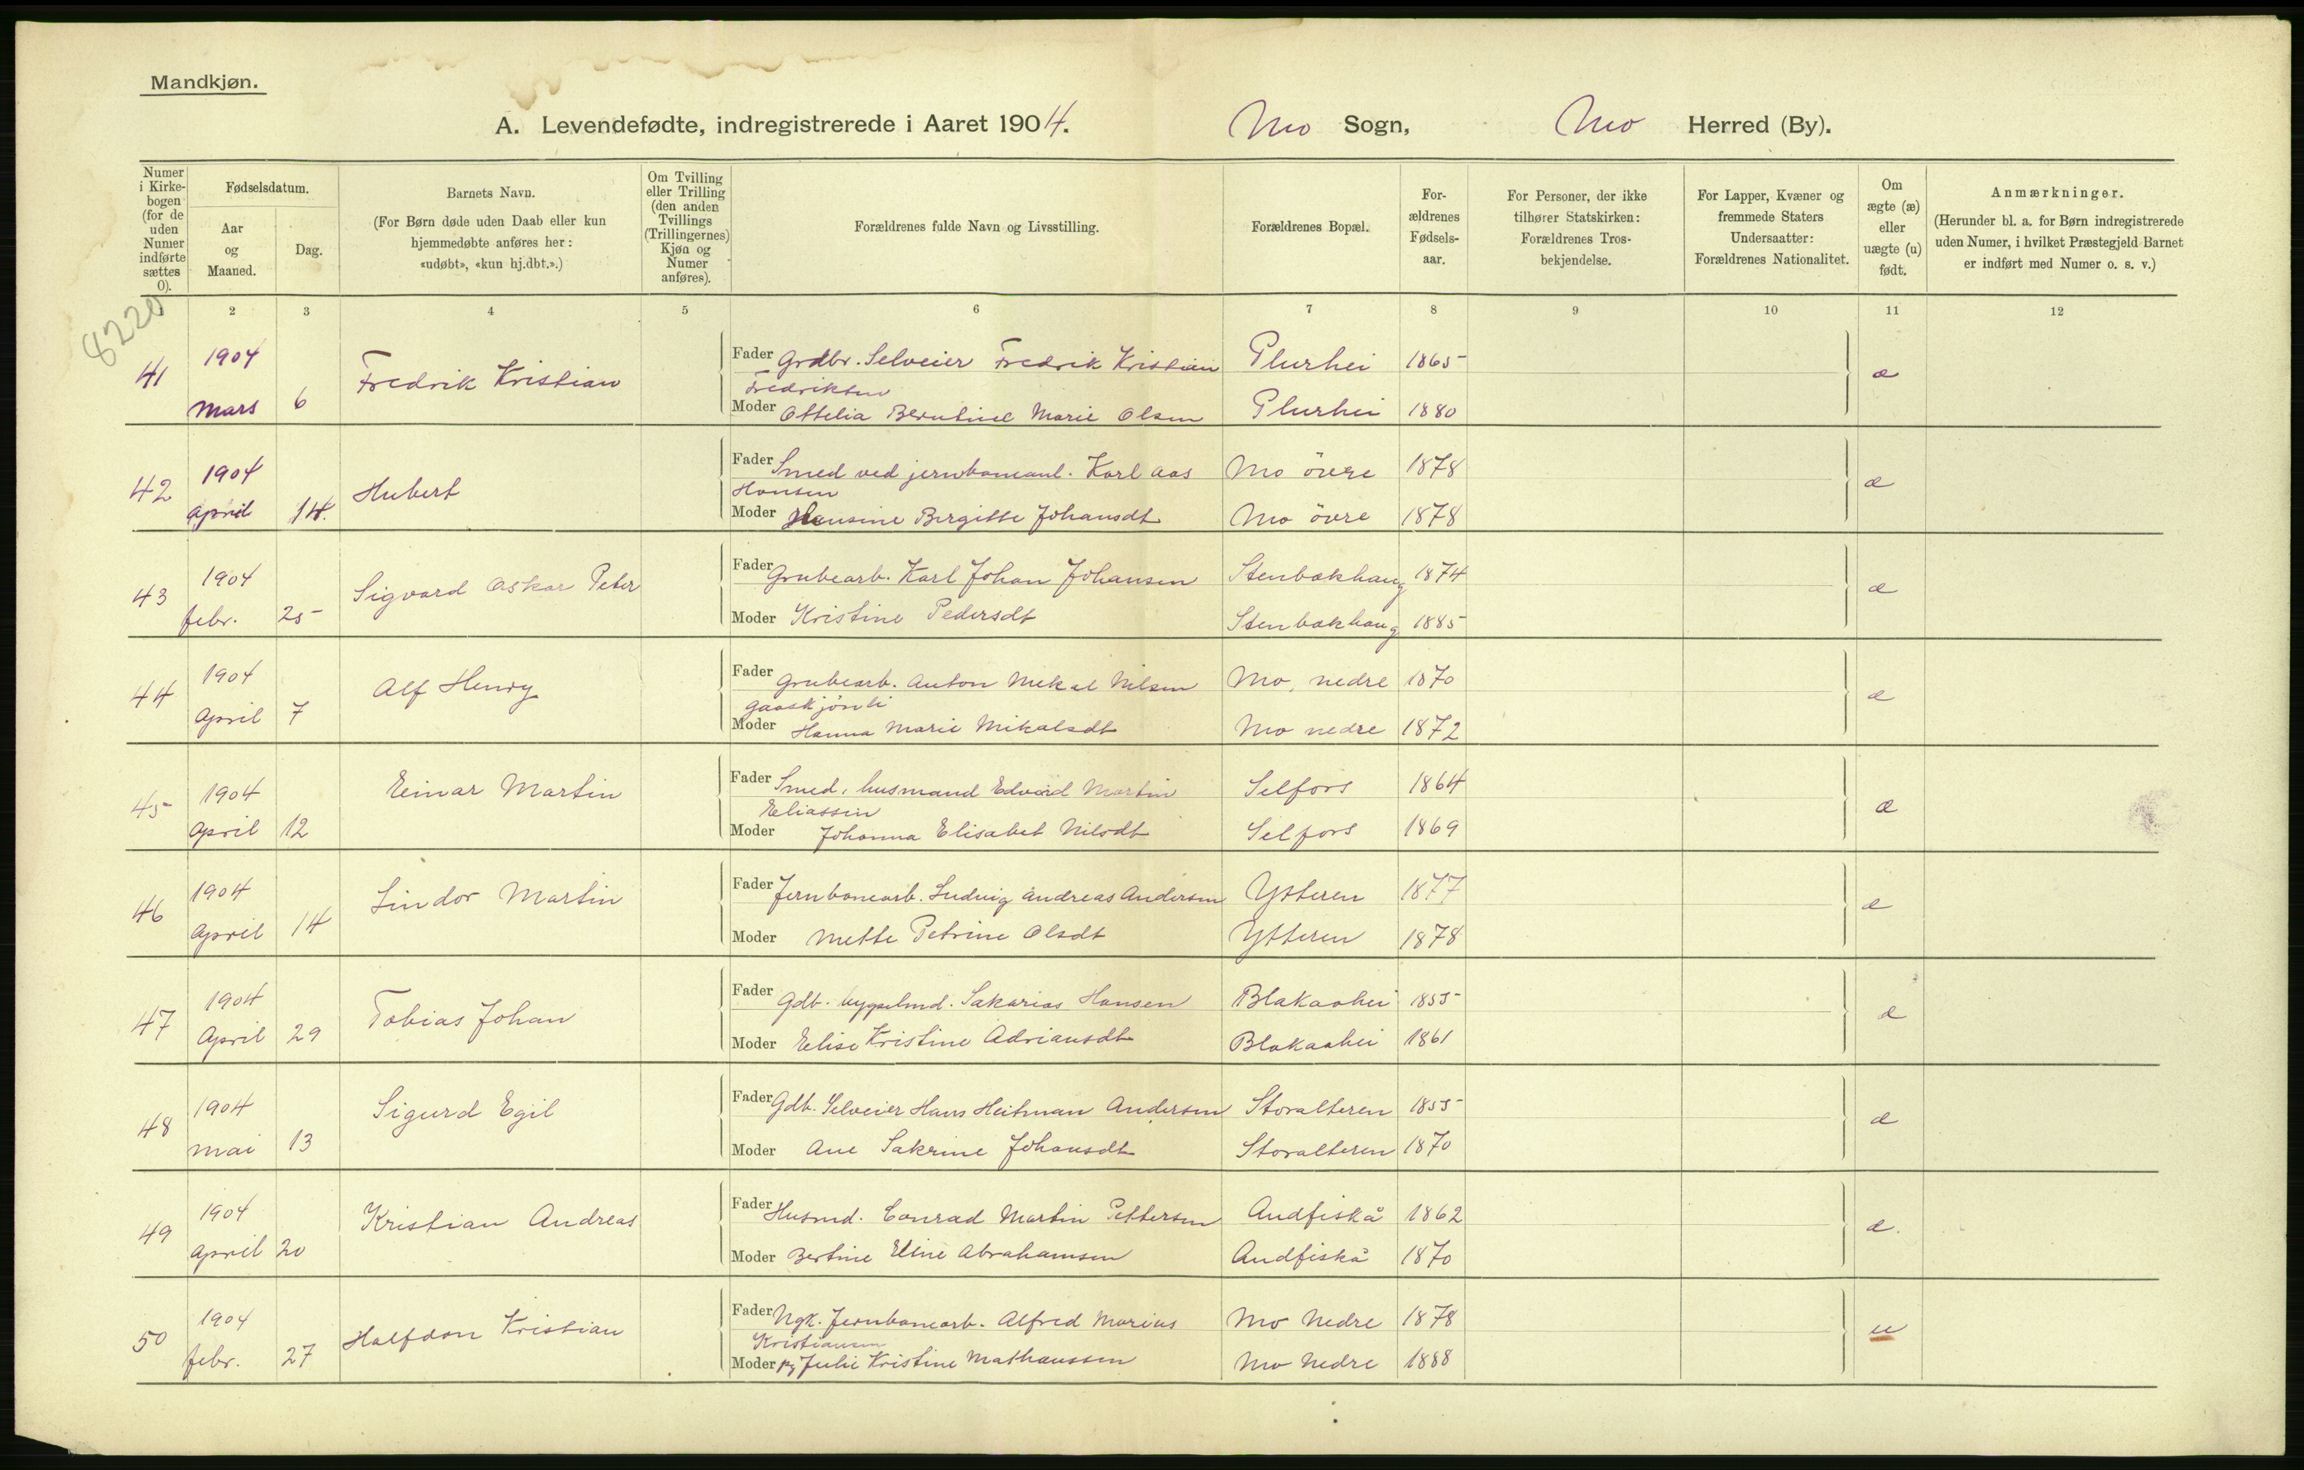 Mandkjøn.
A. Levendefødte, indregistrerede i Aaret 1904. Mo Sogn, Mo Herred (By).
Numer i Kirkebogen (for de uden Numer indførte sættes 0).
Fødselsdatum.
Aar og Maaned.
Dag.
Barnets Navn.
(For Børn døde uden Daab eller kun hjemmedøbte anføres her: «udøbt», «kun hj.dbt.».)
Om Tvilling eller Trilling (den anden Tvillings (Trillingernes) Kjøn og Numer anføres).
Forældrenes fulde Navn og Livsstilling.
Forældrenes Bopæl.
Forældrenes Fødselsaar.
For Personer, der ikke tilhører Statskirken: Forældrenes Trosbekjendelse.
For Lapper, Kvæner og fremmede Staters Undersaatter: Forældrenes Nationalitet.
Om ægte (æ) eller uægte (u) født.
Anmærkninger.
(Herunder bl. a. for Børn indregistrerede uden Numer, i hvilket Præstegjeld Barnet er indført med Numer o. s. v.)
1 2 3 4 5 6 7 8 9 10 11 12
8220
41 1904 Mars 6 Fredrik Kristian
Fader Grdbr. Selveier Fredrik Kristian Plurhei 1865
Fredriksen
Moder Ottelia Berntine Marie Olsen Plurhei 1880
æ
42 1904 April 14. Hubert
Fader Smed ved jernbaneanl. Karl Aas Mo övre 1878
Hansen
Moder Hansine Birgitte Johansdt Mo övre 1878
æ
43 1904 febr. 25 Sigvard Oskar Peter
Fader Grubearb. Karl Johan Johansen Stenbækhaug 1874
Moder Kristine Pedersdt Stenbækhaug 1885
æ
44 1904 April 7 Alf Henry
Fader Grubearb. Anton Mekal Nilsen Mo, nedre 1870
Gaaskjönli
Moder Hanna Marie Mikalsdt Mo nedre 1872
æ
45 1904 April 12 Einar Martin
Fader Smed, husmand Edvard Martin Selfors 1864
Eliassen
Moder Johanna Elisabet Nilsdt Selfors 1869
æ
46 1904 April 14 Sindor Martin
Fader Jernbanearb. Ludvig Andreas Andersen Ytteren 1877
Moder Mette Petrine Olsdt Ytteren 1878
æ
47 1904 April 29 Tobias Johan
Fader Gdb. bygselmd. Sakarias Hansen Blakaahei 1855
Moder Elise Kristine Adriansdt Blakaahei 1861
æ
48 1904 Mai 13 Sigurd Egil
Fader Gdb. Selveier Hans Heitman Andersen Storalteren 1855
Moder Ane Sakrine Johansdt Storalteren 1870
æ
49 1904 April 20 Kristian Andreas
Fader Husmd. Conrad Martin Pettersen Andfiskå 1862
Moder Bertine Eline Abrahamsen Andfiskå 1870
æ.
50 1904 febr. 27 Halfdan Kristian
Fader Ngk. Jernbanearb. Alfred Marius Mo Nedre 1878
Kristiansen
Moder pg Julie Kristine Mathaussen Mo Nedre 1888
u